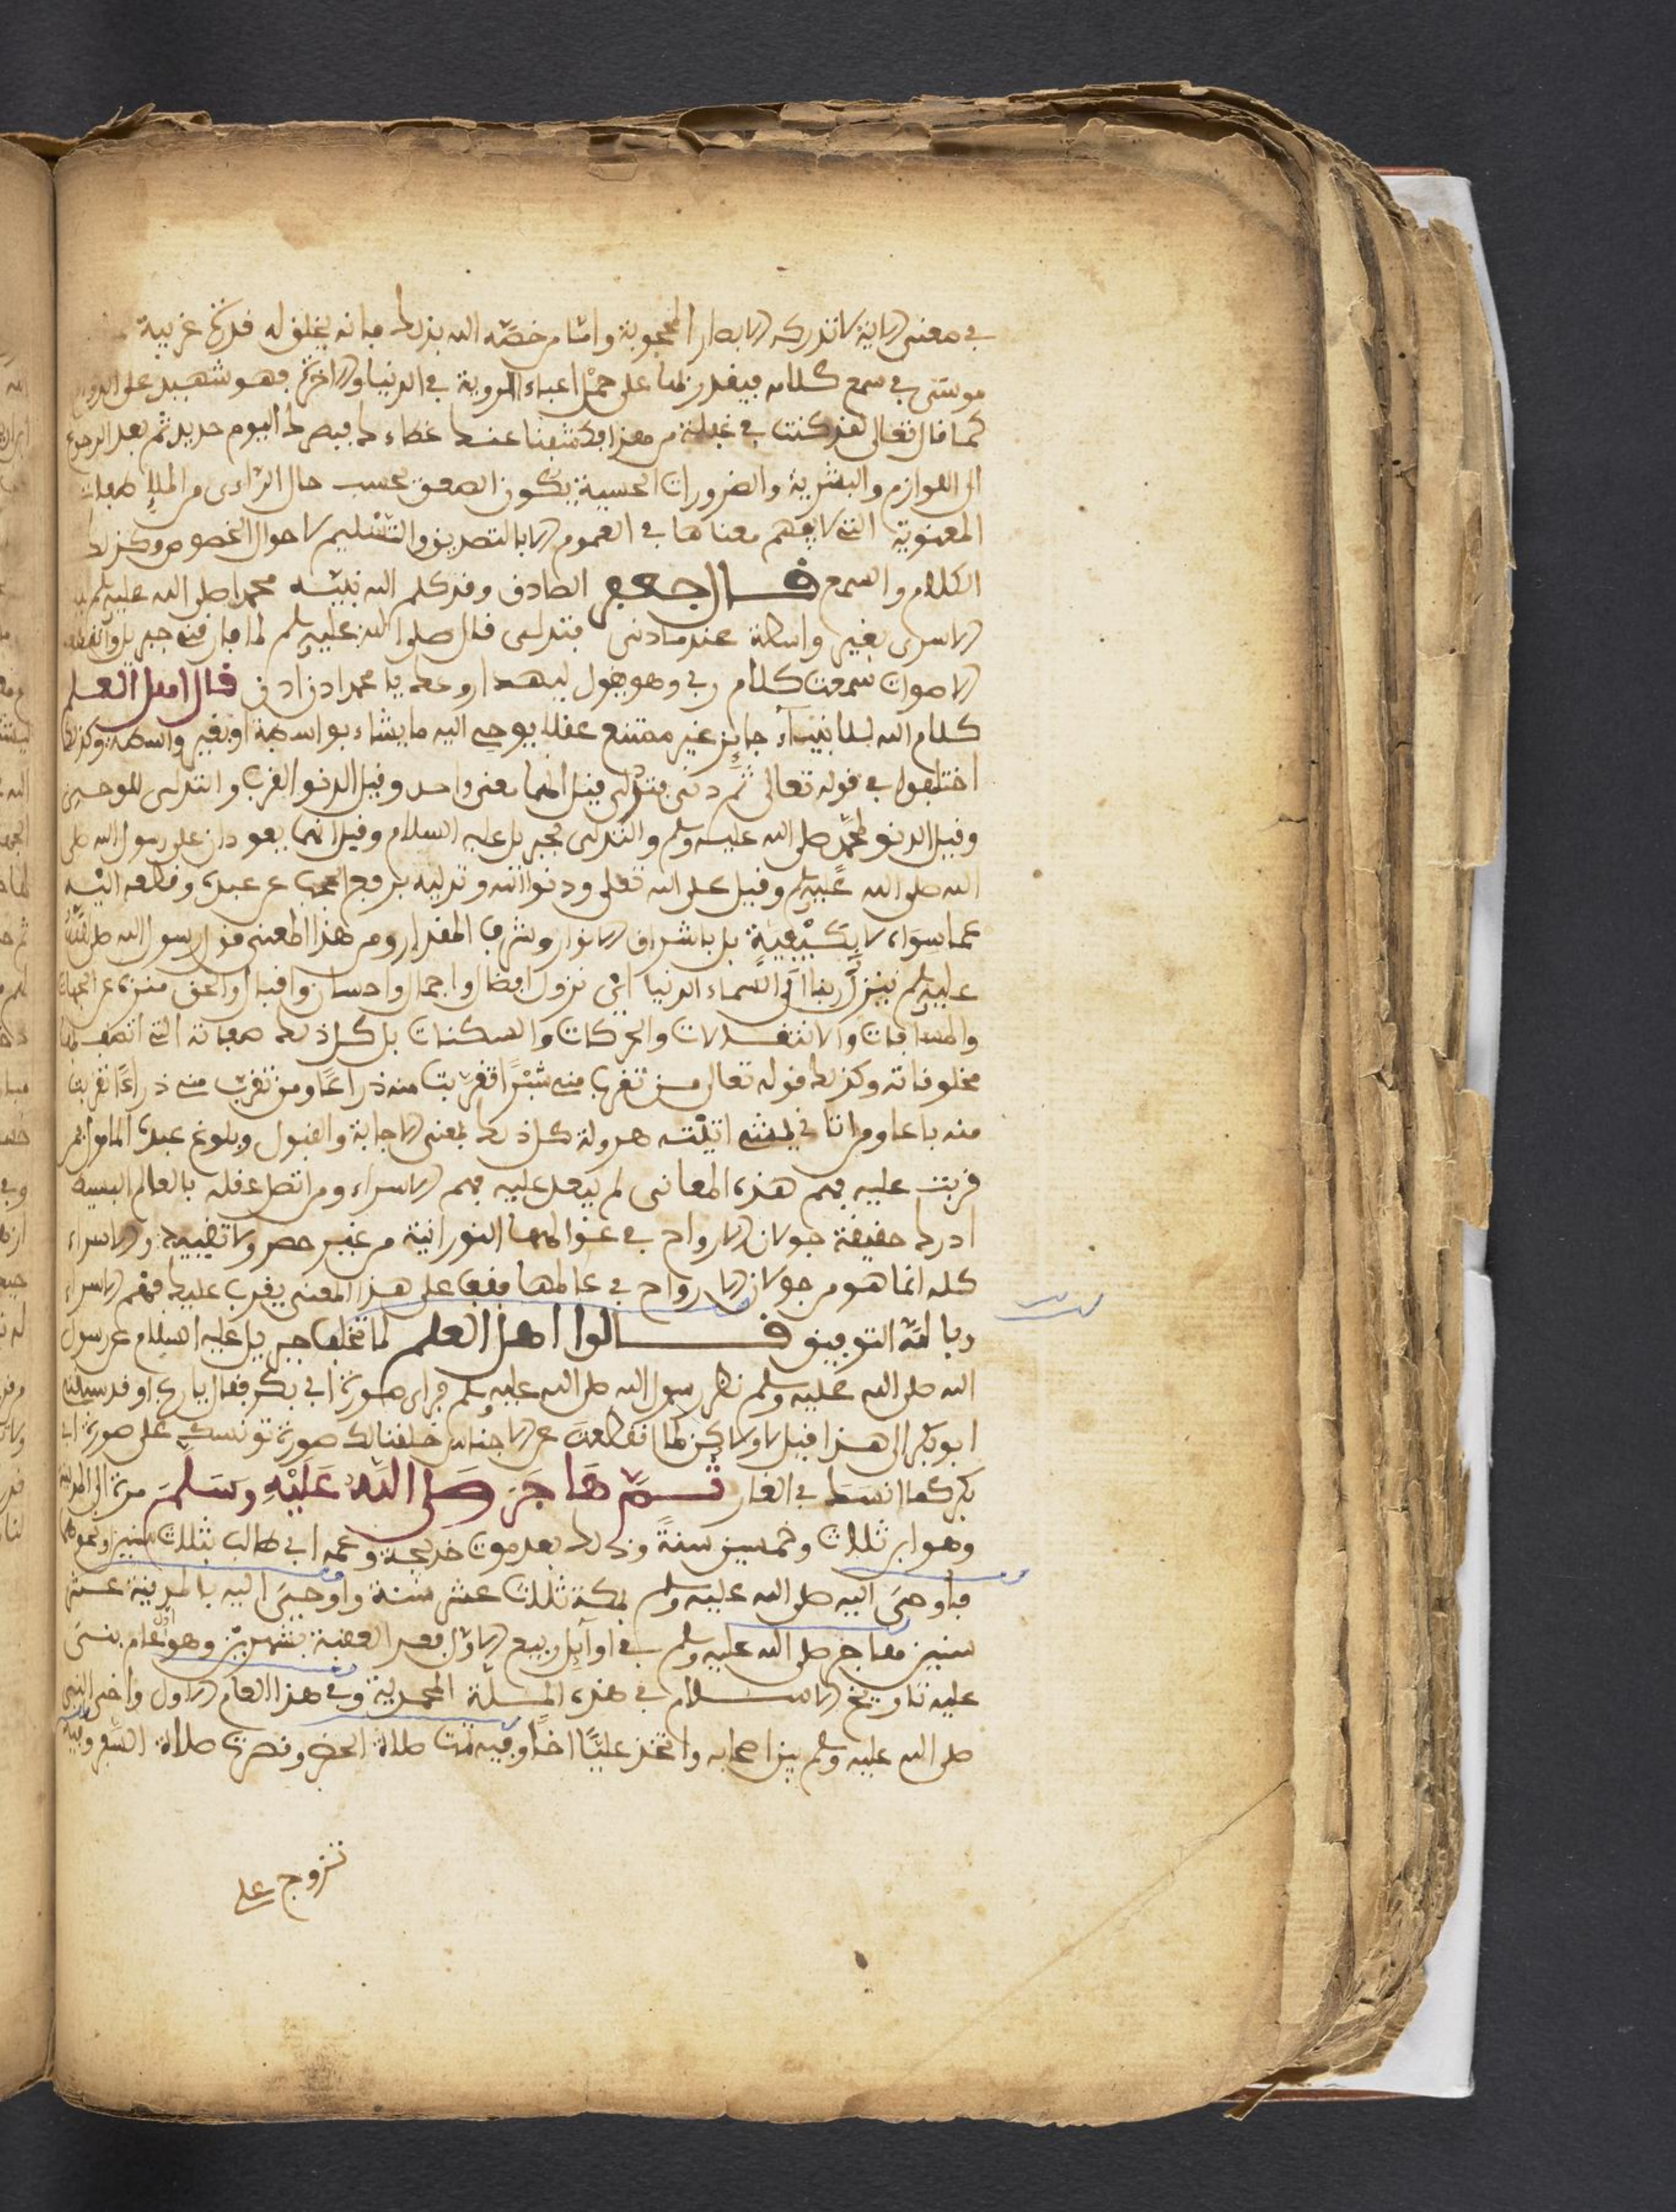 في معنى الاية لا تدركه الابصار المحجوبة واما من خصه الله بذلك فانه يخلق له قدرة غريبة
موسى في سمع كلامه فيقدر بها على حمل اعباء الروية في الدنيا والاخرة فهو شهيد على
كما قال تعالى لقد كنت في غفلة من هذا فكشفنا عنك غطاءك فبصرك اليوم حديد ثم بعد الرجوع
الى اللوازم والبشرية والضرورات الحسية يكون الصعق بحسب حال الراءى من الملإ
المعنوية التي لا يفهم معناها في العموم الا بالتصديق والتسليم لاحوال الخصوص وكذلك
الكلام والسمع قال جعفر الصادق وقد كلم الله نبيه محمدا صلى الله عليه وسلم ليلة
الاسرى بغير واسطة عندما دنى فتدلى قال صلى الله عليه وسلم لما فارقني جبريل وانقطعت
الاصوات سمعت كلام ربي وهو يقول ليهدا روعك يا محمد ادن ادن قال اهل العلم
كلام الله للانبيآء جايز غير ممتنع عقلا يوحي اليه ما يشاء بواسطة او بغير واسطة وكذلك
اختلفوا في قوله تعالى ثم دنى فتدلى فقيل انهما معنى واحد وقيل الدنو القرب والتدلى للوحين
وقيل الدنو لمحمد صلى الله عليه وسلم والتدلى لجبريل عليه السلام وقيل انهما يعودان على رسول الله صلى
الله صلى الله عليه وسلم وقيل على الله تعلى ودنوا الله وتدليه برفع الحجب عن عبده وقطعه اليه
عما سواه لا بكيفية بل باشراق الانوار وشرف المقدار ومن هذا المعنى قول رسول الله صلى الله
عليه وسلم ينزل ربنا الى السماء الدنيا اي نزول افضال واجمال واحسان واقبال والحق منزه عن الجهات
والمسافات والانتقالات والحركات والسكنات بل كل ذلك صفاته التي اتصف بها
مخلوقاته وكذلك قوله تعالى من تقرب مني شبرا تقربت منه ذراعا ومن تقرب مني ذراعا تقربت
منه باعا ومن اتاني يمشي اتيته هرولة كل ذلك لمعنى الاجابة والقبول وبلوغ عبده المامول فمن
قربت عليه فهم هذه المعانى لم يبعد عليه فهم الاسراء ومن اتصل عقله بالعالم البسيط
ادرك حقيقة جولان الارواح في عوالمها النورانية من غير حصر ولا تقييد والاسراء
كله انما هو من جولان الارواح في عالمها فقف على هذا المعنى يقرب عليك فهم الاسراء
وبالله التوفيق قالوا اهل العلم لما تخلف جبريل عليه السلام عن رسول
الله صلى الله عليه وسلم نظر رسول الله صلى الله عليه وسلم فراى صورة ابي بكر فقال يا رب او قد سبقني
ابو بكر الى هذا فقيل لا ولاكن لما انقطعت عن الاجناس خلقنا لك صورة تونسك على صورة ابي
بكر كما انسك في الغار ثم هاجر صلى الله عليه وسلم من مكة الى المدينة
وهو ابن ثلاث وخمسين سنة وذلك بعد موت خديجة وعمه ابي طالب بثلاث سنين او نحوها
فاوحى اليه صلى الله عليه وسلم بمكة ثلاث عشر سنة واوحي اليه بالمدينة عشر
سنين فهاجر صلى الله عليه وسلم في اوآيل ربيع الاول بعد العقبة بشهرين وهو اول عام بنى
عليه تاريخ الاسلام في هذه الملة المحمدية وفي هذا العام الاول واخى النبي
صلى الله عليه وسلم بين اصحابه واتخذ عليا اخا وفيه تمت صلاة الحضر وقصرت صلاة السفر وفيه
تزوج علي